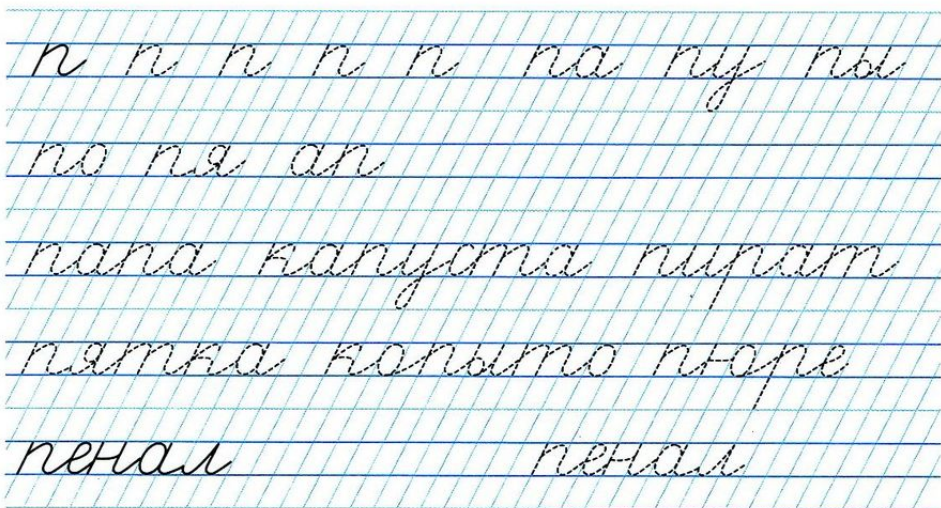 п п п п п па пу пы
по пя ап
папа капуста пират
пятка копыто пюре
пенал пенал